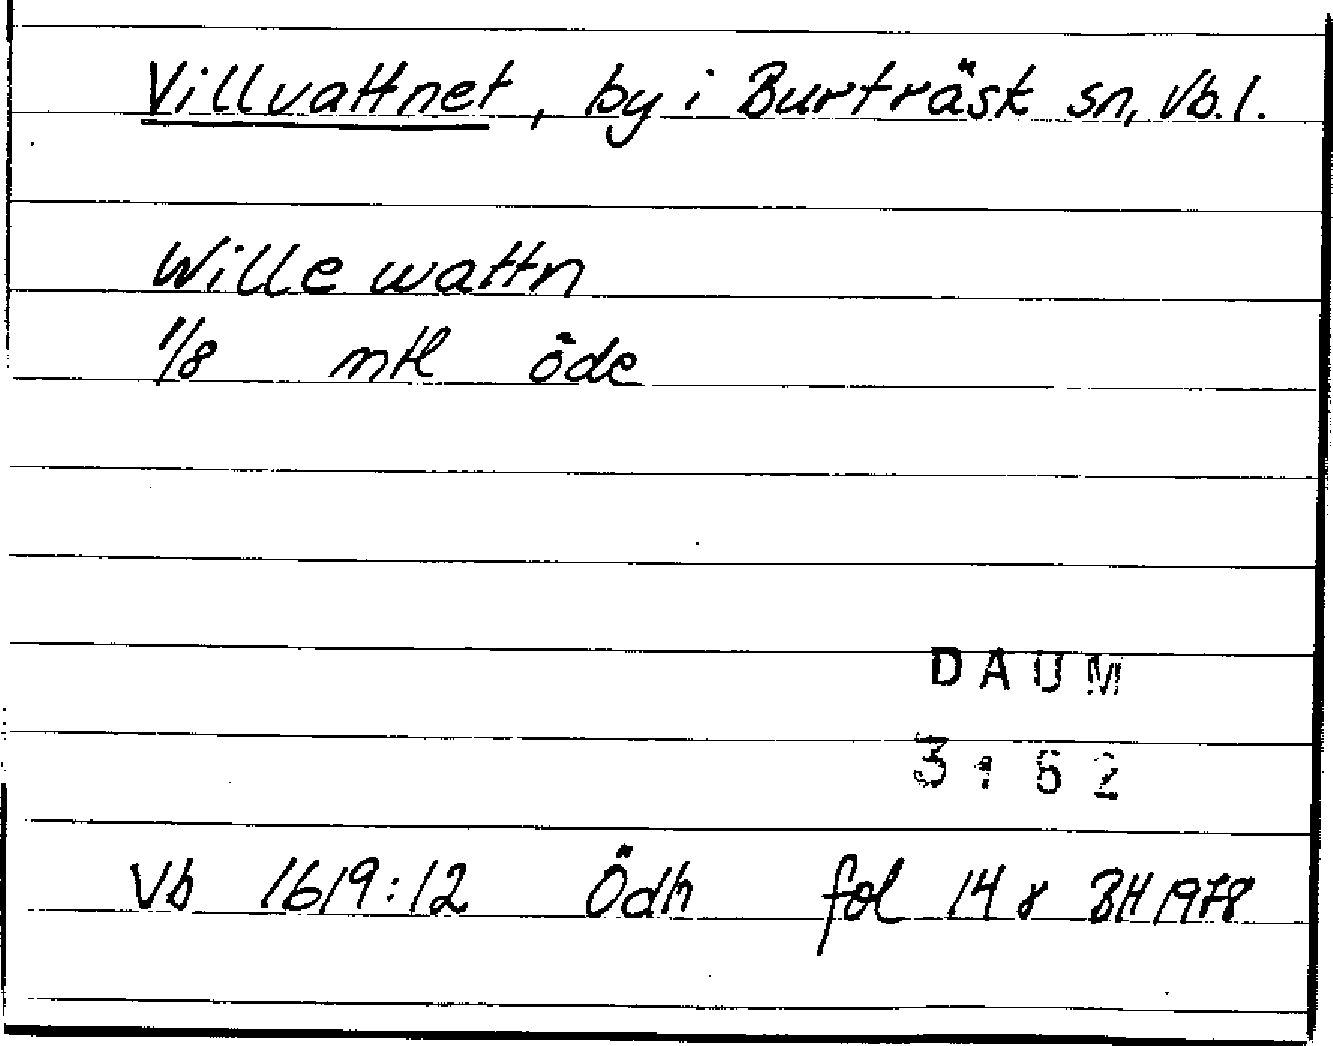 Villvattnet, by i Burträsk sn, Vb. l.
Wille wattn
1/8 mtl öde
DAUM
3162
Vb 1619:12 Ödh fol 14 v BH 1978